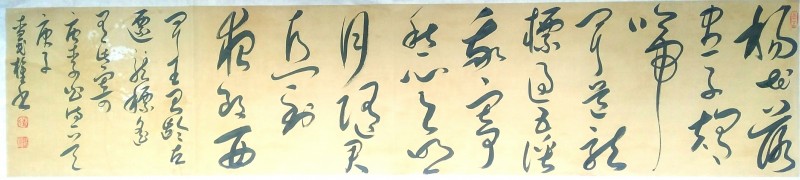 楊花落
盡子規
啼
聞道龍
標過五溪
我寄
愁心與明
月隨君
直到
夜郎西
聞王昌齡左
遷龍標遙
有此寄
唐李白詩
庚子
書